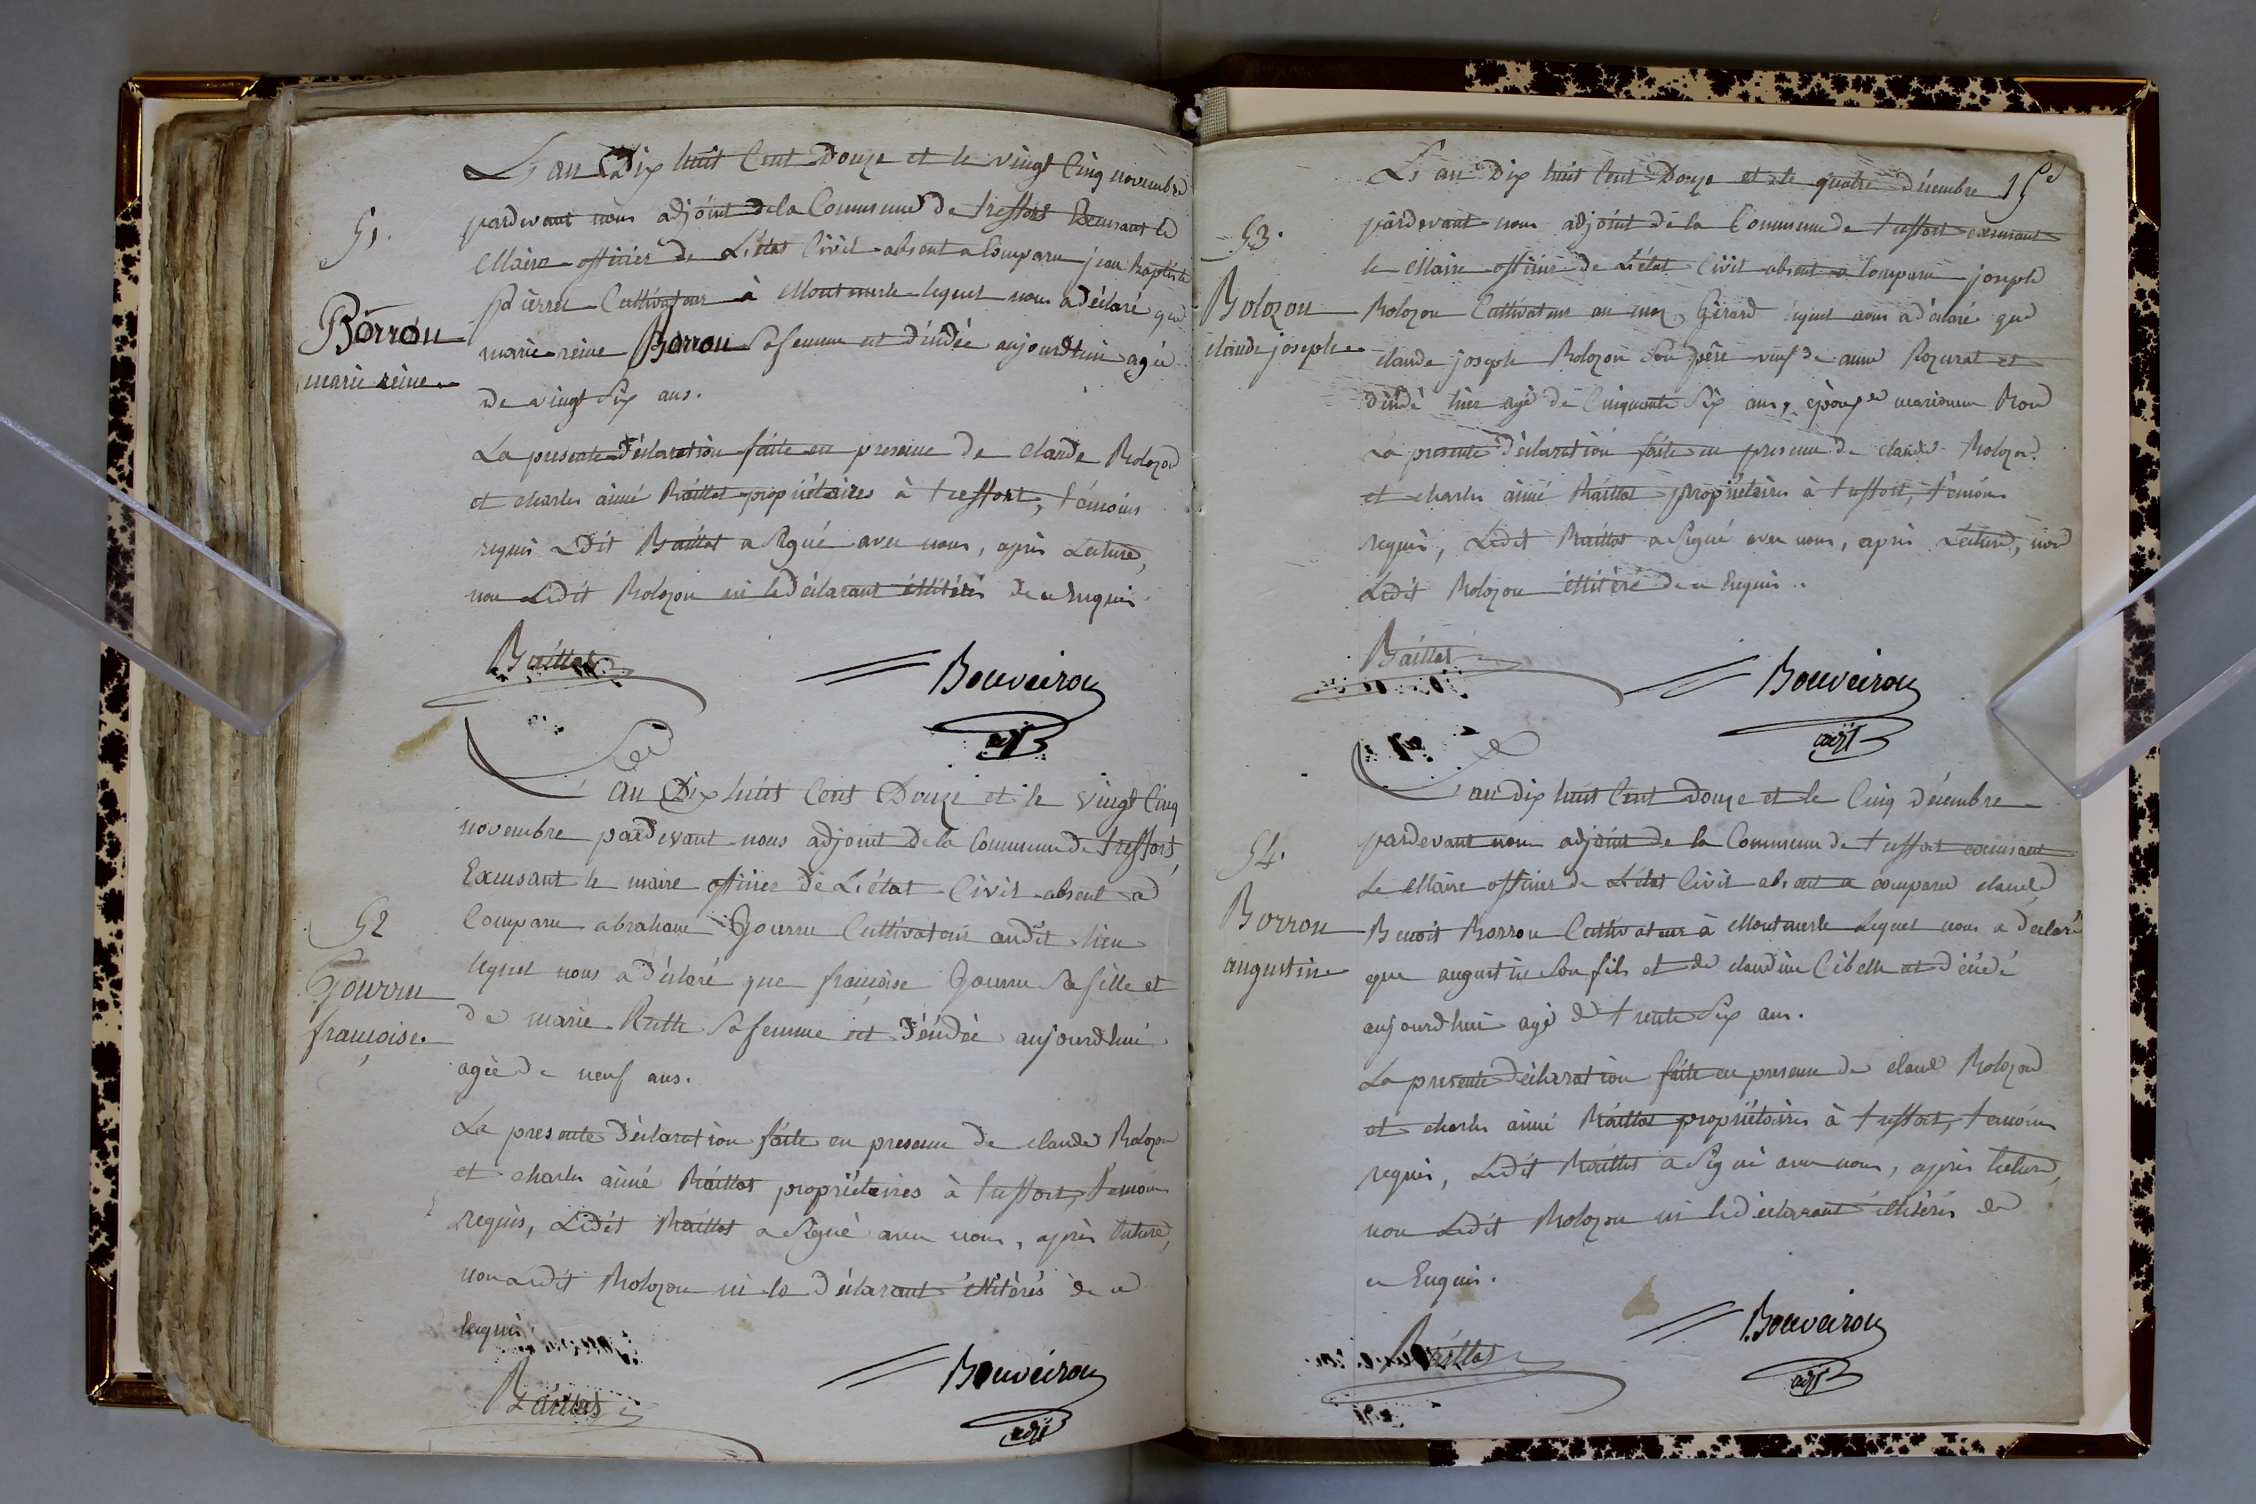 L'an Dix huit Cent Douze et le vingt Cinq novembre
pardevant nous adjoint de la Commune de treffort Excusant le
Maire officier de L'état Civil absent a Comparu jean Baptiste
Pierret Cultivateur à Montmerle lequel nous a déclaré que
marie reine Borron Sa femme est décédée aujourdhui agée
de vingt Six ans.
La presente Déclaration faite en presence de claude Bolozon
et charles aimé Baillat propriétaires à treffort, témoins
requis Ledit Baillat a Signé avec nous, après Lecture,
non Ledit Bolozon ni le déclarant illitérés de ce Enquis
51.
Borron
marie reine
Baillat
Bouveiron
adjt
L'an Dix huit Cent Douze et le vingt Cinq
novembre pardevant nous adjoint de la Commune de treffort,
Excusant le maire officier de L'état Civil absent a
Comparu abraham Gourru Cultivateur audit lieu
lequel nous a déclaré que françoise Gourru Sa fille et
de marie Sa femme est décédée aujourdhui
agée de neuf ans.
La presente Déclaration faite en presence de claude Bolozon
et charles aimé Baillat propriétaires à treffort, témoins
requis, Ledit Baillat a Signé avec nous, après lecture,
non Ledit Bolozon ni le déclarant illitérés de ce
Enquis.
52
Gourru
françoise.
Baillat
Bouveiron
adjt
L'an Dix huit Cent Douze et le quatre décembre
pardevant nous adjoint de la Commune de treffort excusant
le Maire officier de L'état Civil absent a Comparu joseph
Bolozon Cultivateur au mas Girard lequel nous a déclaré que
claude joseph Bolozon Son père veuf de anne Rozurat est
décédé hier agé de Cinquante Six ans, époux de marianne
La presente Déclaration faite en presence de claude Bolozon
et charles aimé Baillat propriétaires à treffort, témoins
requis, Ledit Baillat a Signé avec nous, après Lecture, non
Ledit Bolozon illitéré de ce Enquis.
53.
Bolozon
claude joseph
Baillat
Bouveiron
adjt
L'an dix huit Cent Douze et le Cinq décembre
pardevant nous adjoint de la Commune de treffort excusant
Le Maire officier de L'état Civil absent a comparu claude
Benoit Borron Cultivateur à Montmerle Lequel nous a déclaré
que augustin Son fils et de claudine Cibelle est décédé
aujourdhui agé de trente Six ans.
La presente Déclaration faite en presence de claude Bolozon
et charles aimé Baillat propriétaires à treffort, témoins
requis, Ledit Baillat a Signé avec nous, après lecture,
non Ledit Bolozon ni le déclarant illitérés de
ce Enquis.
54.
Borron
augustin
Baillat
Bouveiron
adjt